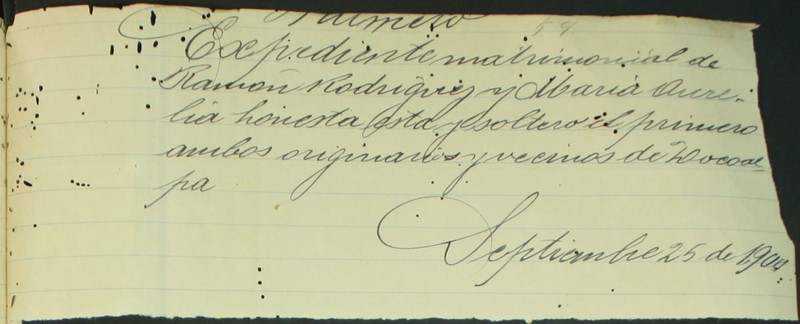 Numero 54
Expediente matrimonial de
Ramon Rodriguez y Maria Aure-
lia honesta esta y soltero el primero
ambos originarios y vecinos de Docoal-
pa
Septiembre 25 de 1904.